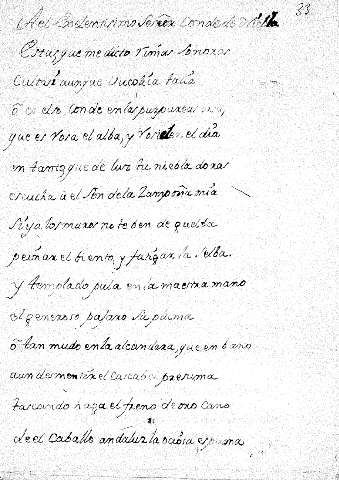 33
A el Excelentisimo Señor Conde de Niebla
Estas que me dicto rimas sonoras
Culta si aunque bucolica talia
ô excelso Conde en las purpureas oras
que es rosa el alba, y rosicler el dia
en tanto que de luz tu niebla doras
escucha a el son de la Zampoña mia
si ya los muros no te ben de guelba
peinar el biento, y fatigar la selba.
y templado pula en la maestra mano
el generoso pajaro su pluma
ô tan mudo en la alcandara, que en bano
aun desmentir el cascabel presuma
tascando haga el freno de oro cano
de el caballo andaluz la ociosa espuma